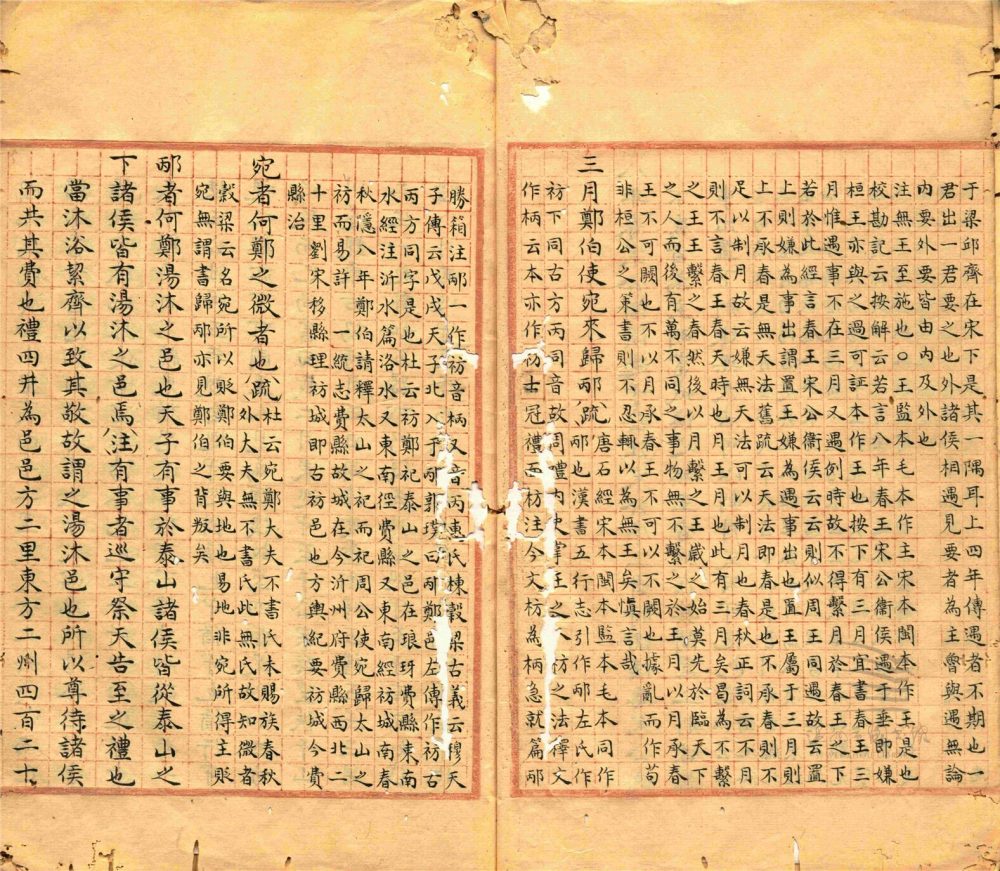 于梁邱齊在宋下是其一隅耳上四年傳遇者不期也一
君出一君要之也外諸侯相遇見要者為主會與遇無論
內要外要皆由內及外也
注無王至施也○王監本毛本作主宋本閩本作王是也
校勘記云按解云若言八年春王宋公衞侯遇于垂即嫌
桓王亦與之過可証本作王也按下有三月宜書春王三
月惟遇事不在三月又遇例時故不得繫月於春王之下
若於此經言春王宋公衞侯云云則似周王同遇故云置
上則嫌為事出謂置王嫌為遇事出也置王屬于三月則
上不承春是無天法舊疏云天法即春是也不承春則不
足以制月故云嫌無天法可以制月也春秋正詞云不月
則不言春王王春天時也王月王月也此有三月矣曷為不繫
之王王繫之春然後以月繫之王歲之始莫先於臨天下
之人而後有萬不同之事物無不繫之於王月以月承春
王不可闕也不以月承春王不可以不闕也據亂而作苟
非桓公之策書則不忍輒以為無王矣慎言哉
三月鄭伯使宛來歸邴疏唐石經宋本閩本監本毛本同作
邴也漢書五行志引作邴左氏作
祊下同古方丙同音故周禮內史掌王之八枋之法釋文
作柄云本亦作枋士冠禮面枋注今文枋為柄急就篇邴
勝箱注邴一作祊音柄又音丙惠氏棟穀梁古義云穆天
子傳云戊戌天子北入乎邴郭璞曰邴鄭邑左傳作祊古
丙方同字是也杜云祊鄭祀泰山之邑在琅玡費縣東南
水經注沂水篇洛水又東南徑費縣又東南經祊城南春
秋隱八年鄭伯請釋太山之祀而祀周公使宛歸太山之
祊而易許 一統志費縣故城在今沂州府費縣西北二
十里劉宋移縣理祊城即古祊邑也方輿紀要祊城今費
縣治
宛者何鄭之微者也疏杜云宛鄭大夫不書氏未賜族春秋
外大夫無不書氏此無氏故知微者
穀梁云名宛所以貶鄭伯要與地也易地非宛所得主貶
宛無謂書歸邴亦見鄭伯之背叛矣
邴者何鄭湯沐之邑也天子有事於泰山諸侯皆從泰山之
下諸侯皆有湯沐之邑焉注有事者巡守祭天告至之禮也
當沐浴絜齊以致其敬故謂之湯沐邑也所以尊待諸侯
而共其費也禮四井為邑邑方二里東方二州四百二十